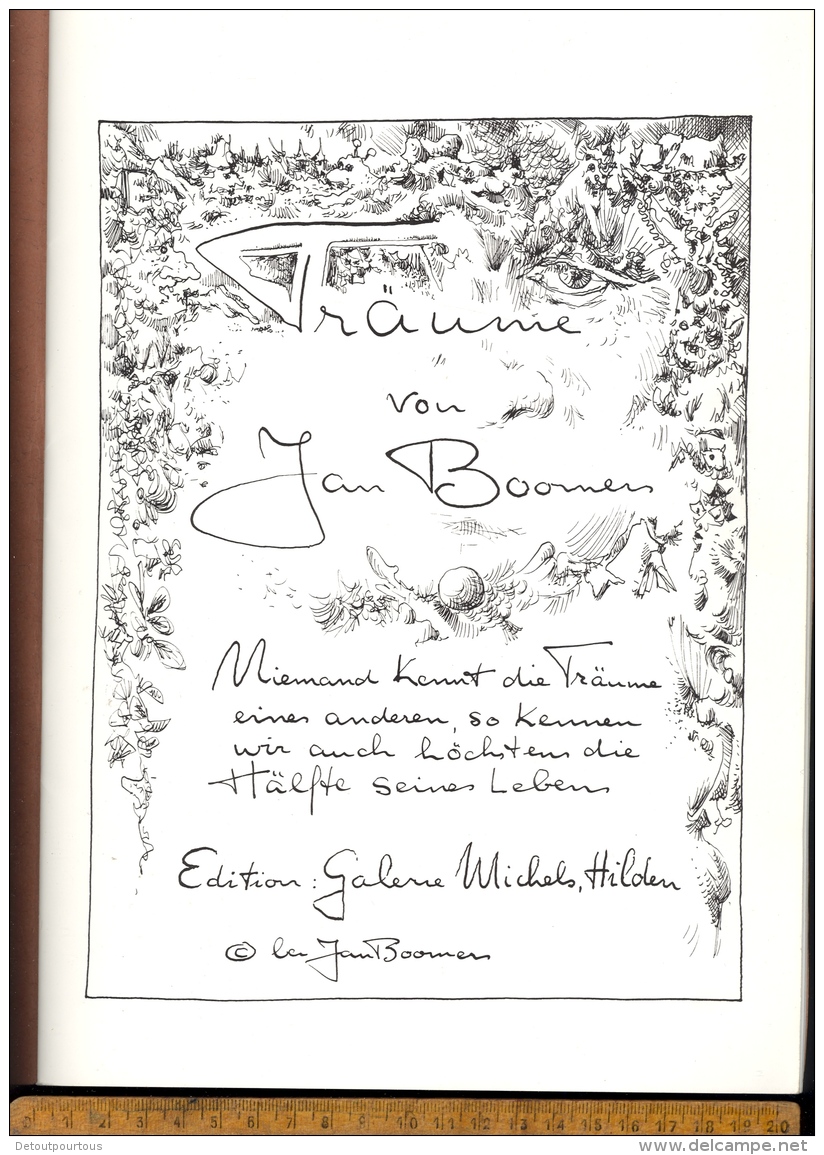 Träume
von
Jan Boomers
Niemand kennt die Träume
eines anderen, so kennen
wir auch höchstens die
Hälfte seines Lebens
Edition: Galerie Michels, Hilden
© bei Jan Boomers
0 1 2 3 4 5 6 7 8 9 10 11 12 13 14 15 16 17 18 19 20
Detoutpourtous
www.delcampe.net